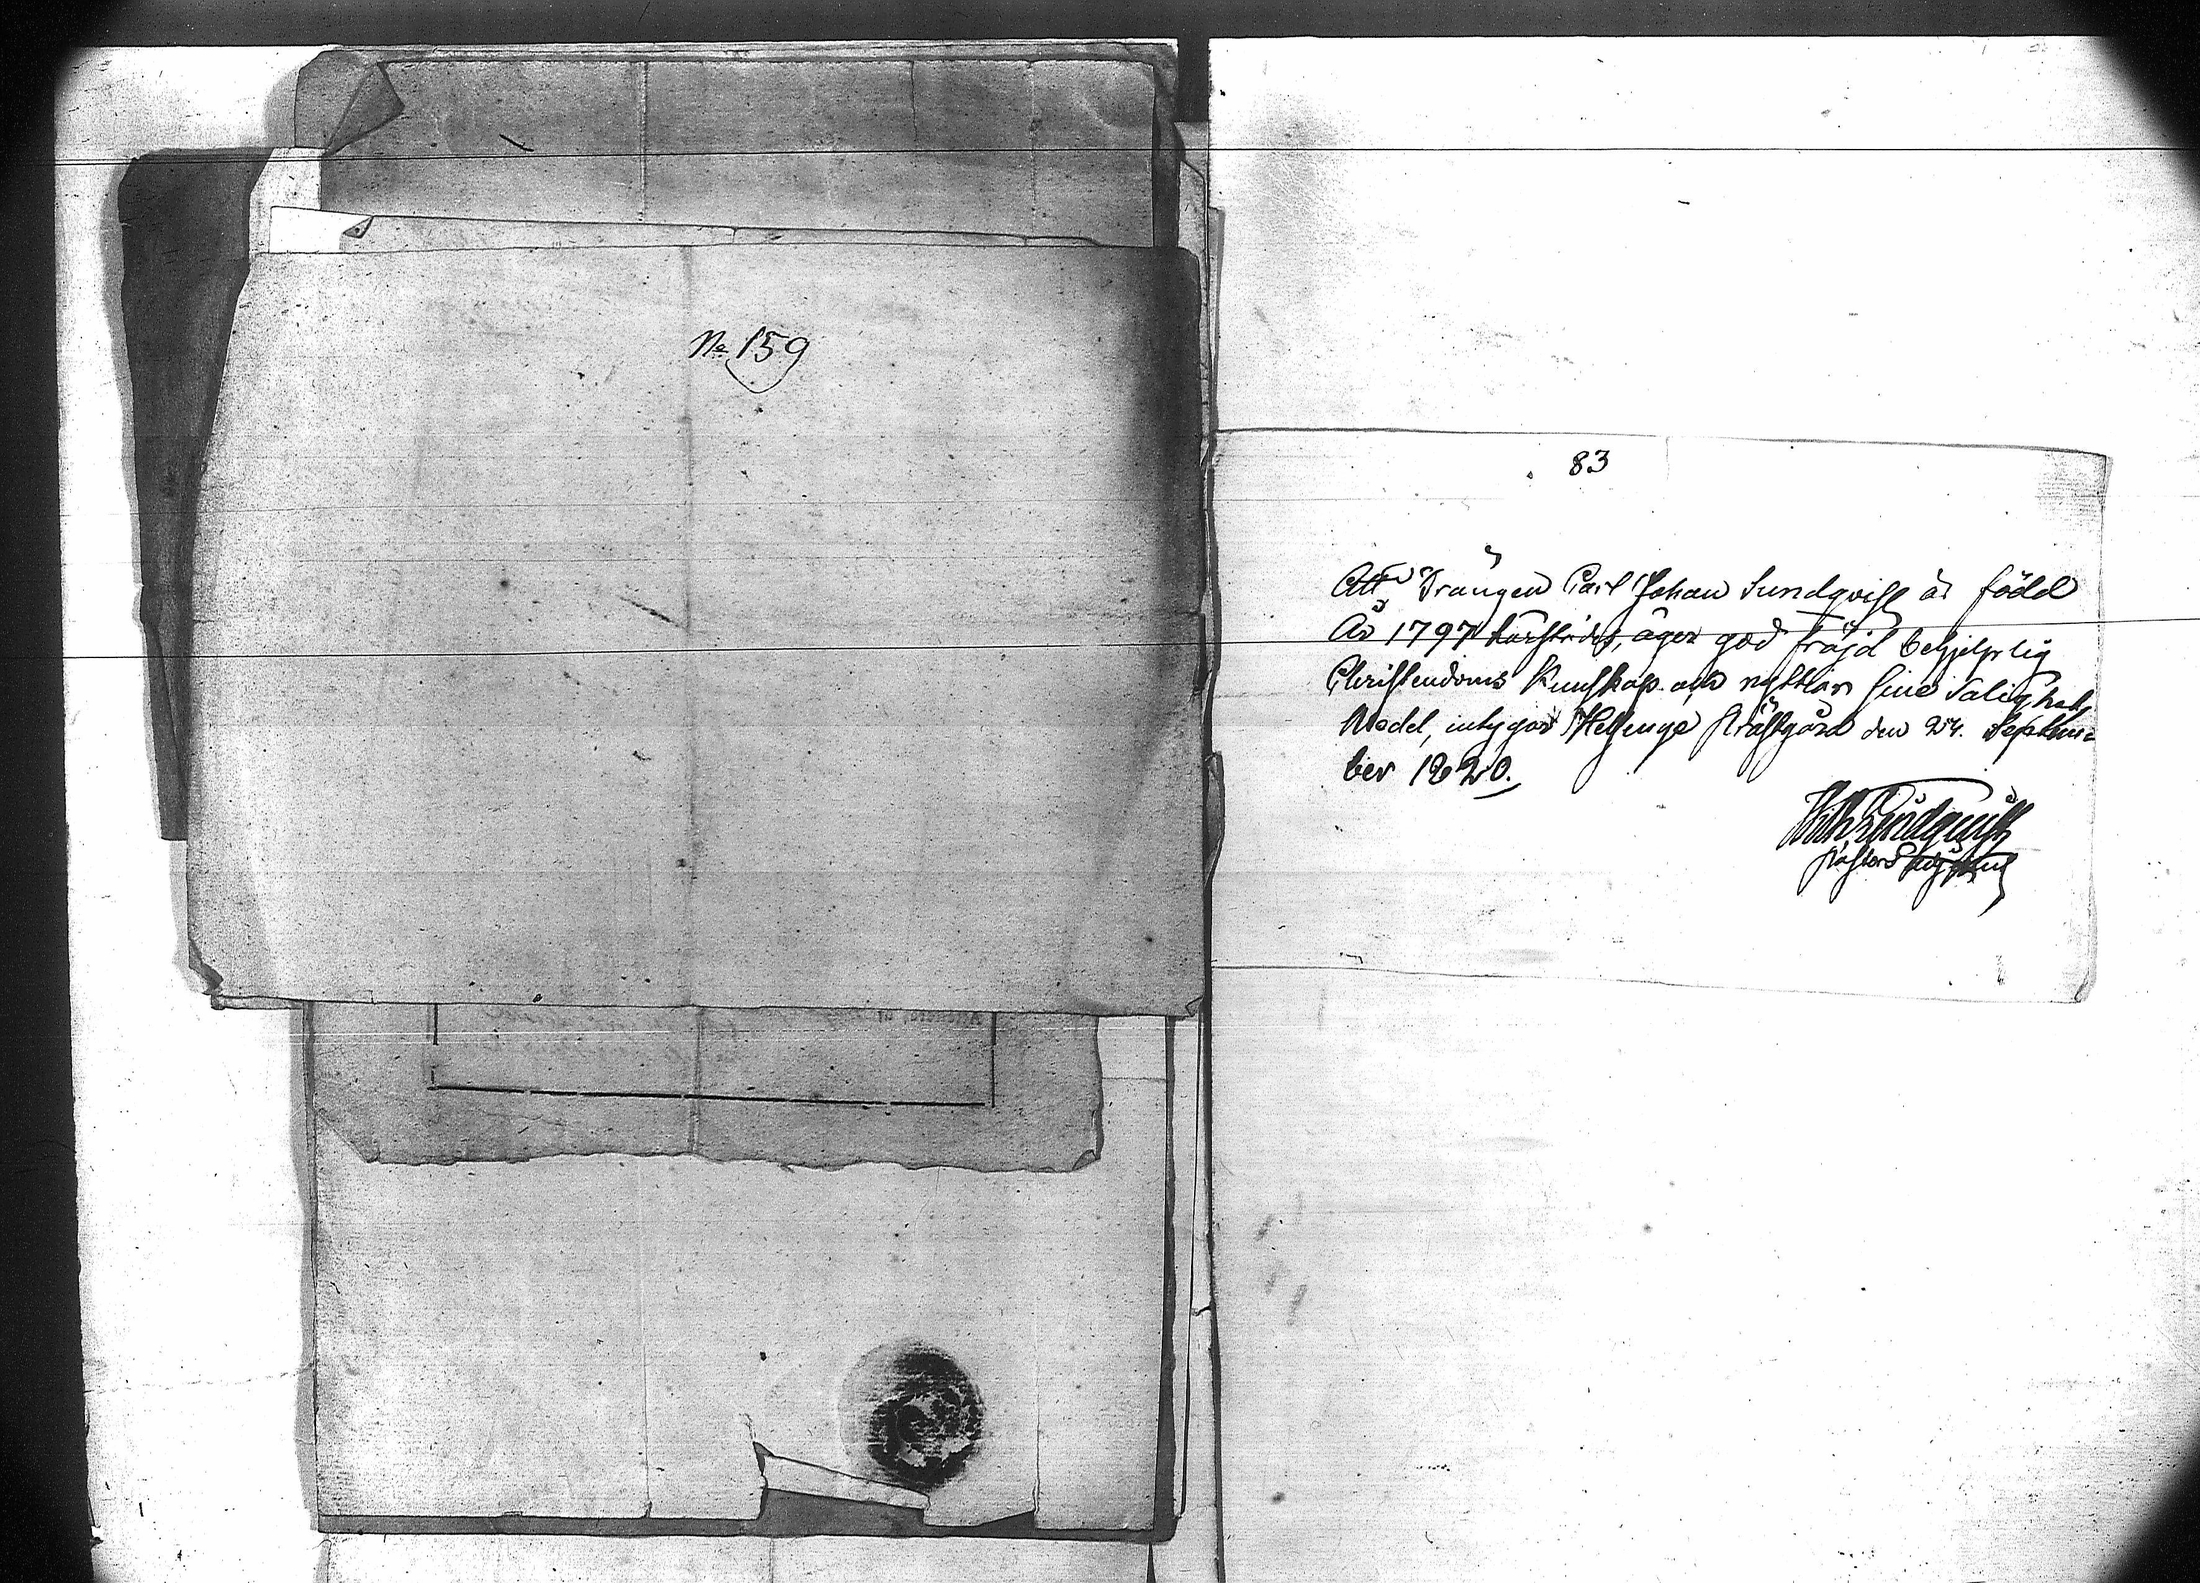 No 159
83
Att Drängen Carl Johan Sundqvist är född
År 1797 härstädes, äger god fräjd behjelplig
Christendoms Kunskap och nyttjar sine Salighets
Medel, intygar Hellenge Prästgård den 24. Septem=
ber 1820.